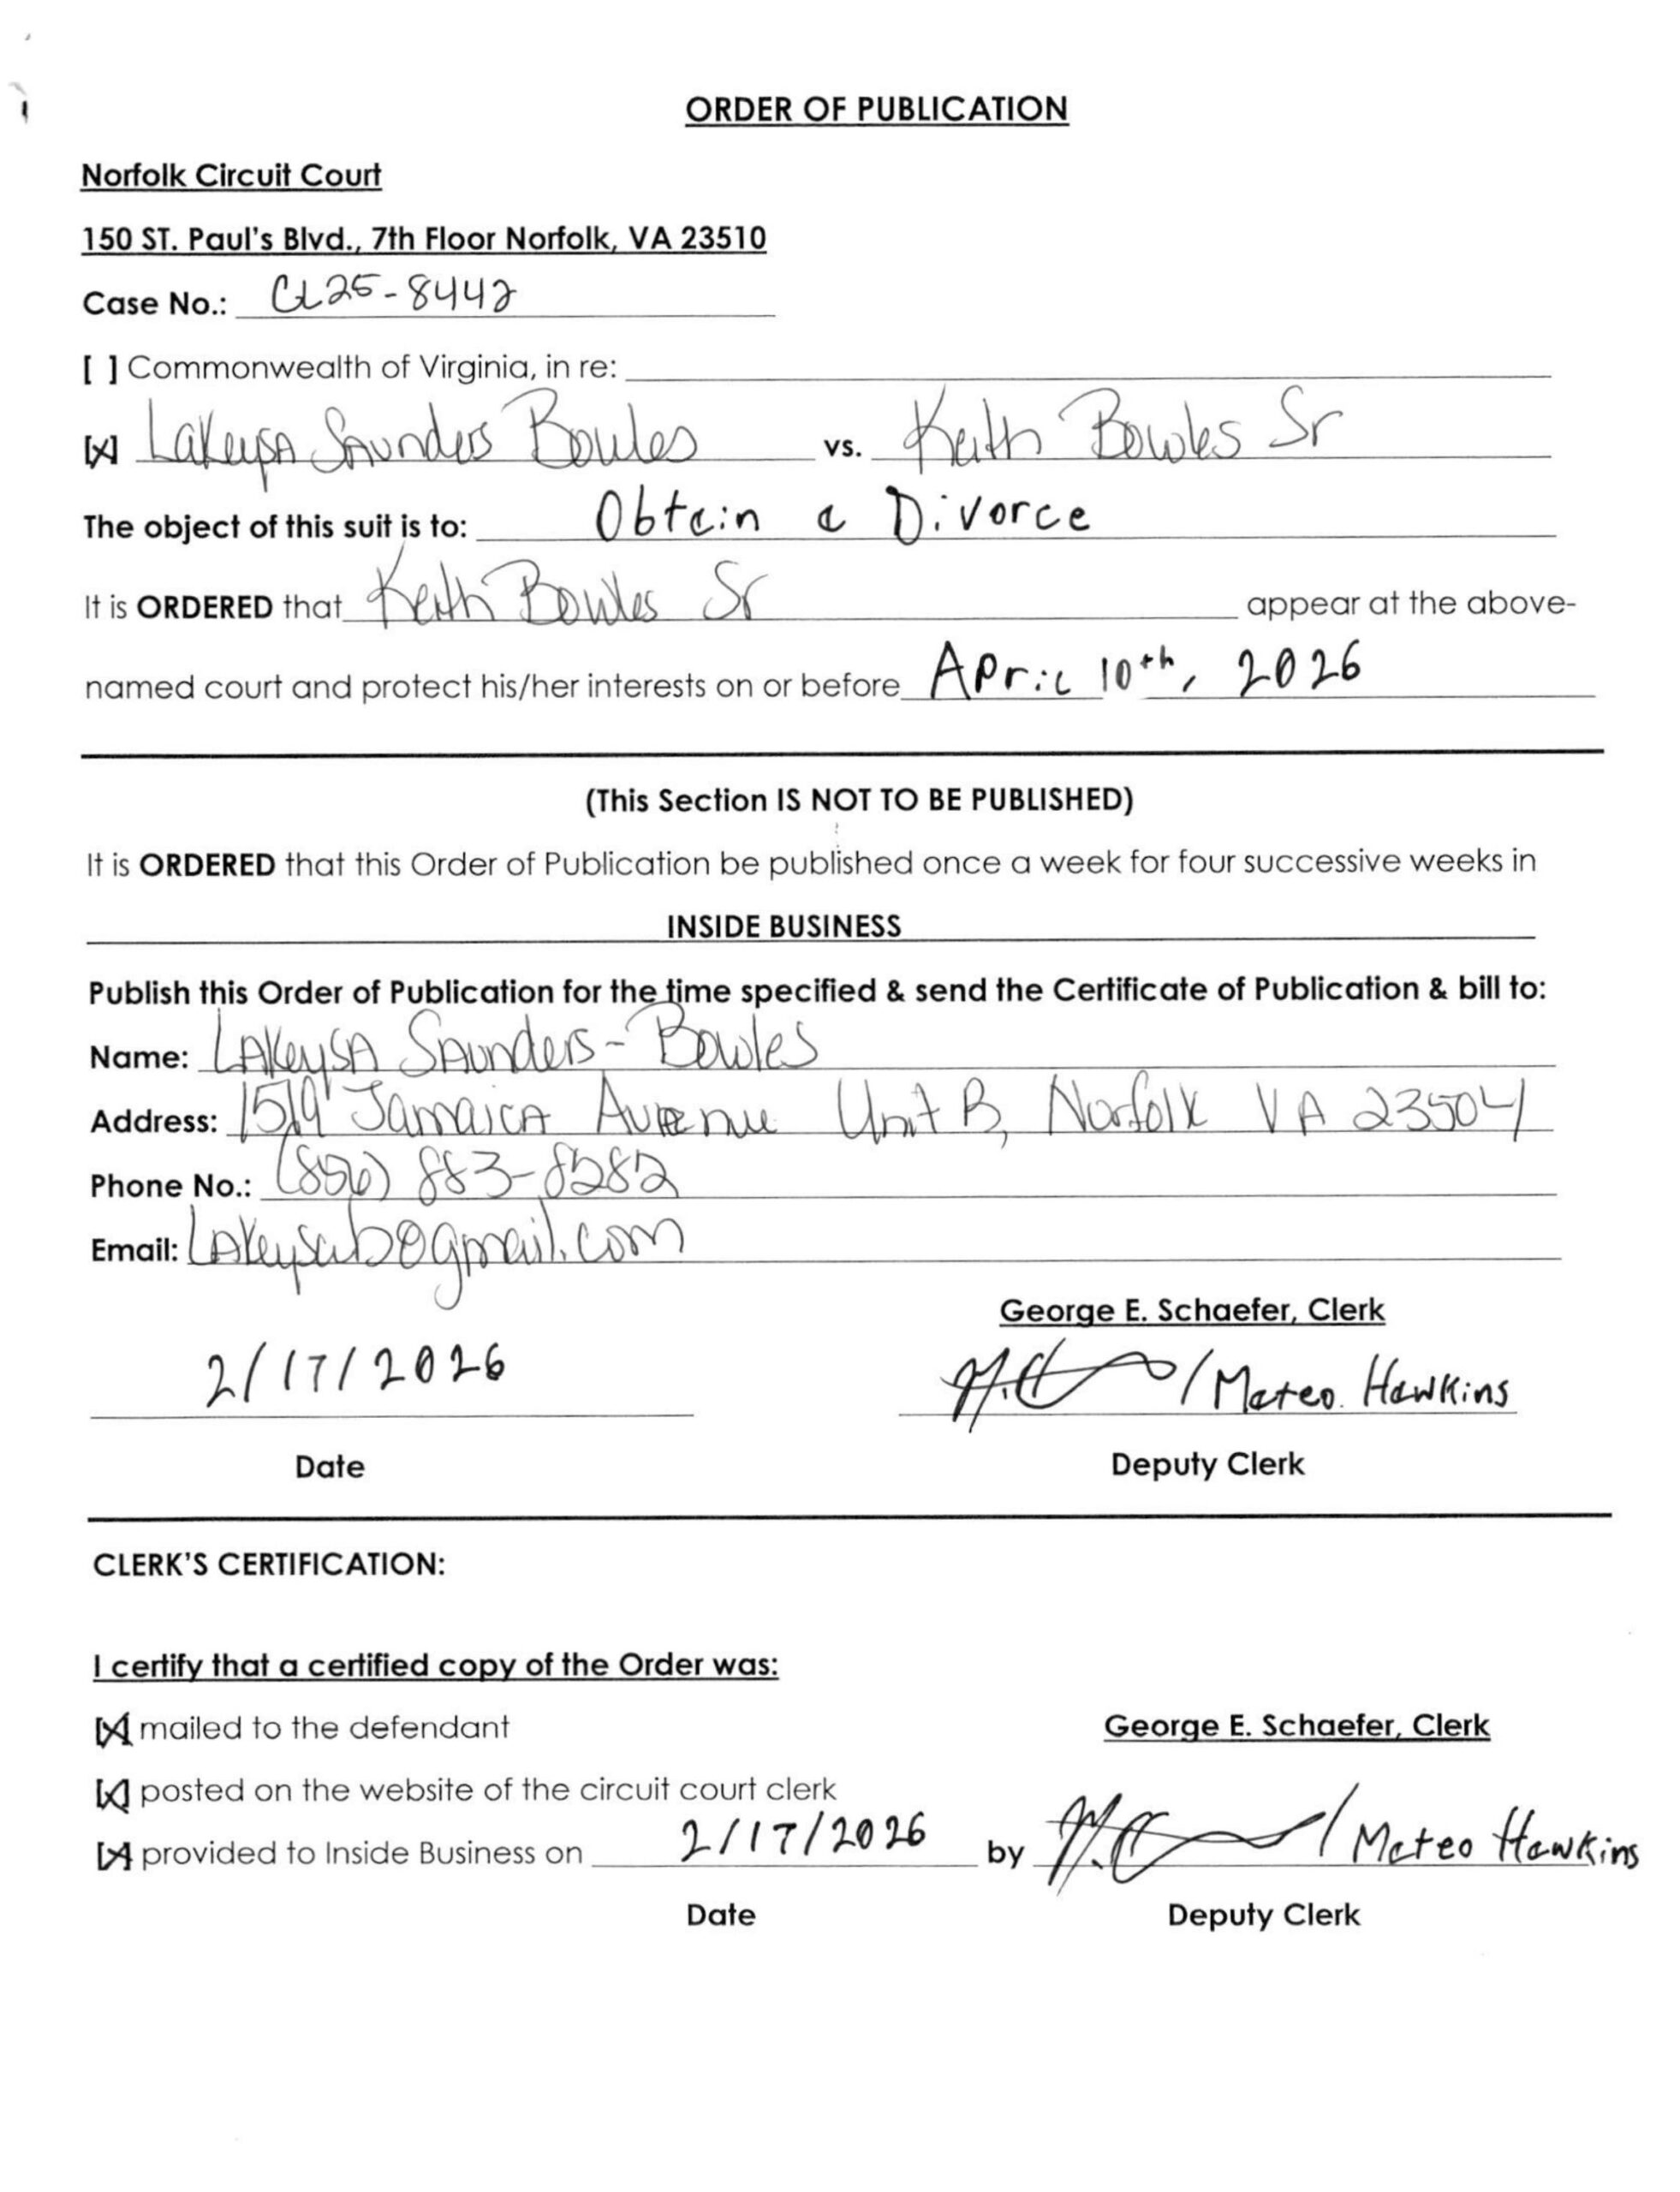 ORDER OF PUBLICATION
Norfolk Circuit Court
150 ST. Paul's Blvd., 7th Floor Norfolk, VA 23510
Case No.: CL25-8442
[ ] Commonwealth of Virginia, in re:
[x] Lakeysa Saunders Bowles vs. Keith Bowles Sr
The object of this suit is to: Obtain a Divorce
It is ORDERED that Keith Bowles Sr appear at the above-
named court and protect his/her interests on or before April 10th, 2026
(This Section IS NOT TO BE PUBLISHED)
It is ORDERED that this Order of Publication be published once a week for four successive weeks in
INSIDE BUSINESS
Publish this Order of Publication for the time specified & send the Certificate of Publication & bill to:
Name: LAKeysA SAunders-Bowles
Address: 1519 Jamaica Avenue Unit B, Norfolk VA 23504
Phone No.: (856) 883-8282
Email: Lakeysab@gmail.com
George E. Schaefer, Clerk
2/17/2026 / Mateo Hawkins
Date Deputy Clerk
CLERK'S CERTIFICATION:
I certify that a certified copy of the Order was:
[x] mailed to the defendant George E. Schaefer, Clerk
[x] posted on the website of the circuit court clerk
[x] provided to Inside Business on 2/17/2026 by / Mateo Hawkins
Date Deputy Clerk